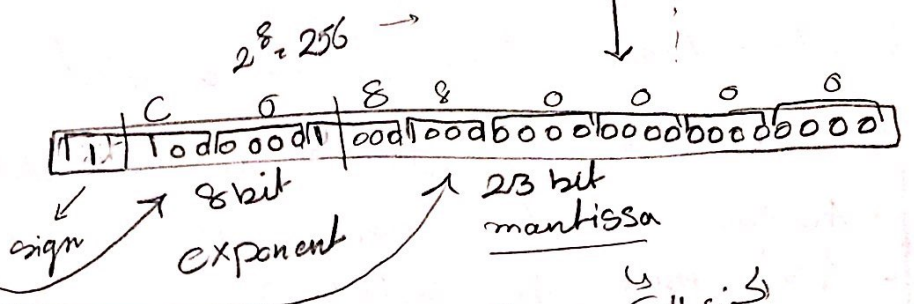 2^8 = 256 →
C 0 8 8 0 0 0 0
1 1 0 0 0 0 0 0 1 0 0 0 1 0 0 0 0 0 0 0 0 0 0 0 0 0 0 0 0 0 0 0
sign 8 bit 23 bit
exponent mantissa